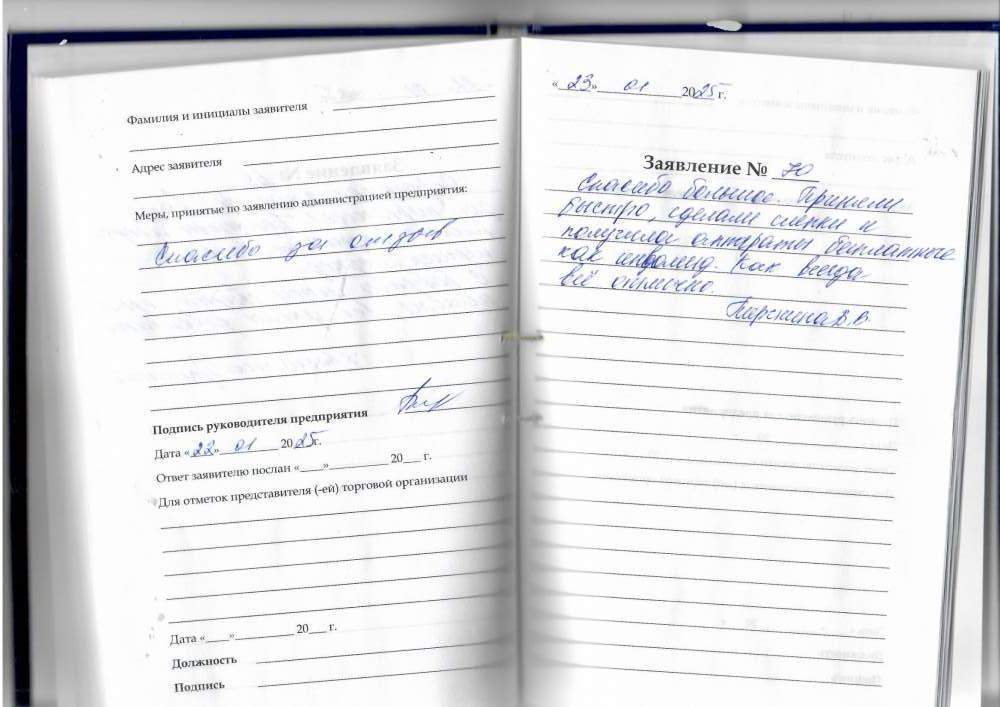 Фамилия и инициалы заявителя
Адрес заявителя
Меры, принятые по заявлению администрацией предприятия:
Спасибо за отзыв
Подпись руководителя предприятия
Дата «22» 01 2025г.
Ответ заявителю послан «___»__________ 20___ г.
Для отметок представителя (-ей) торговой организации
Дата «____»__________ 20___ г.
Должность
Подпись
«23» 01 2025 г.
Заявление № 70
Спасибо большое. Приняли
быстро, сделали слепки и
получила аппараты бесплатно
как инвалид. Как всегда
всё отлично.
В.В.